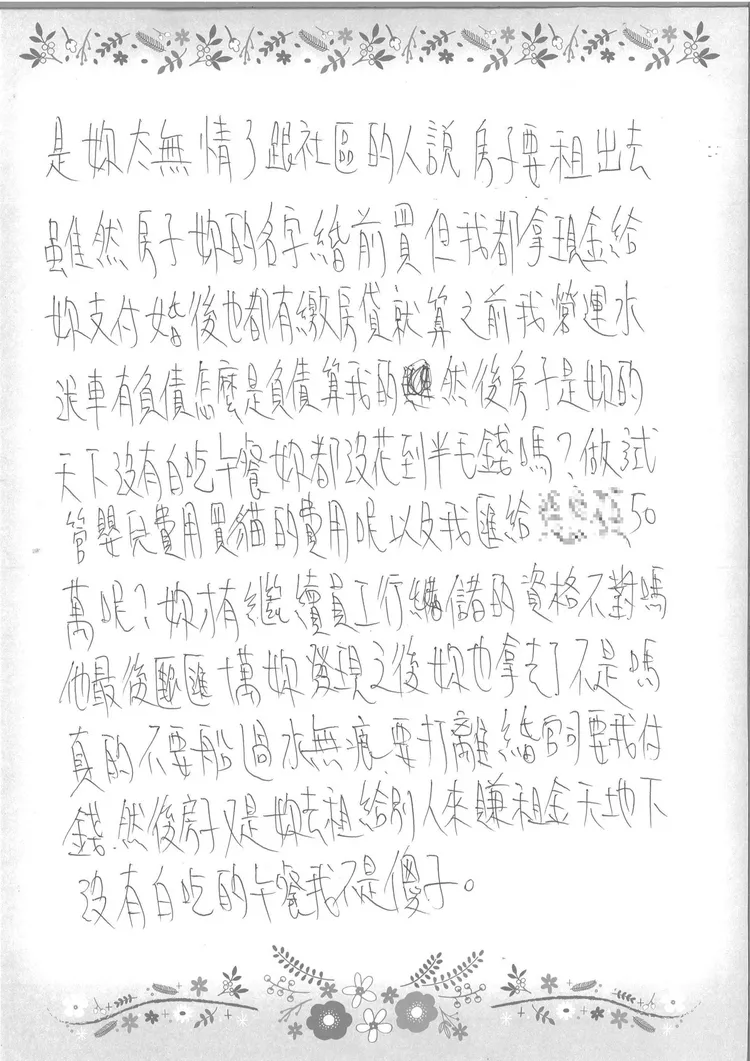 是妳太無情了跟社區的人説房子要租出去
雖然房子妳的名字婚前買但我都拿現金給
妳支付婚後也都有繳房貸就算之前我營運水
送車有負債怎麼是負債算我的然後房子是妳的
天下沒有白吃午餐妳都沒花到半毛錢嗎？做試
管嬰兒費用買貓的費用呢以及我匯給50
萬呢？妳才有繼續員工行儲的資格不對嗎
他最後匯十萬妳發現之後妳也拿走了不是嗎
真的不要船過水無痕要打離婚官司要我付
錢.然後房子又是妳去租給別人來賺租金天地下
沒有白吃的午餐我不是傻子。